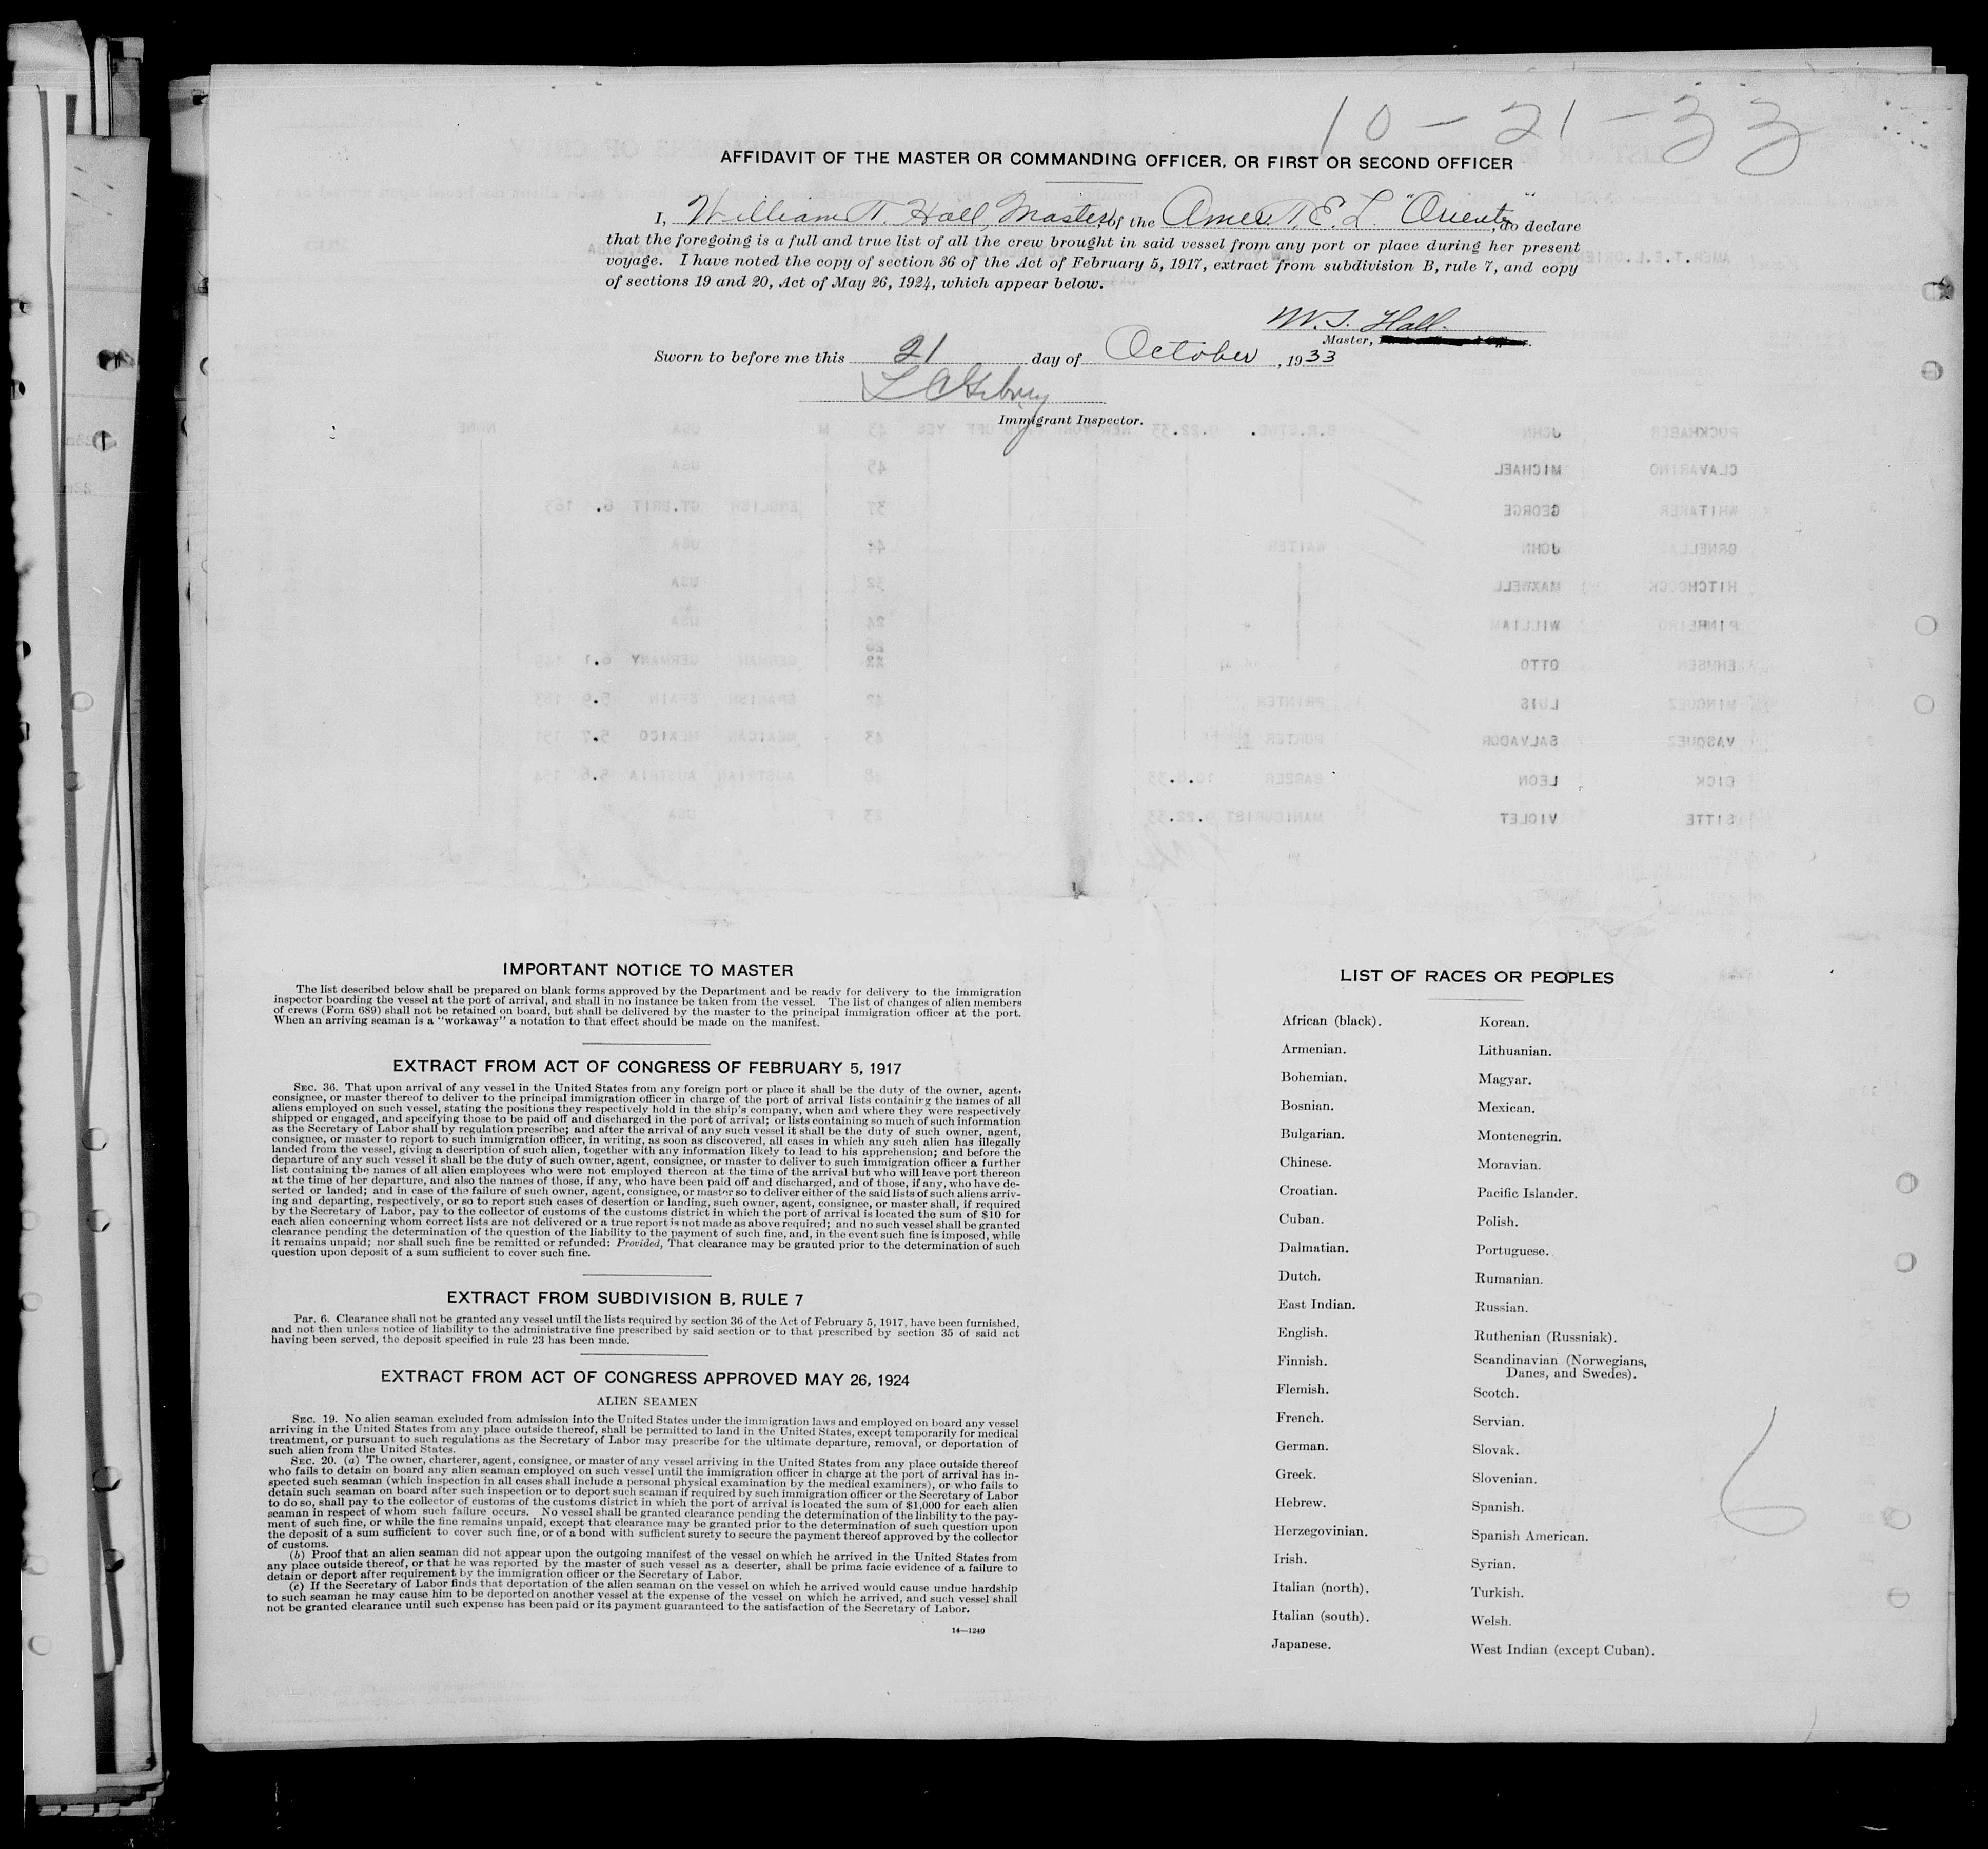 10-21-33
AFFIDAVIT OF THE MASTER OR COMMANDING OFFICER, OR FIRST OR SECOND OFFICER
I, William T. Hall, Master, of the Amer. T. E. L. "Oriente", do declare
that the foregoing is a full and true list of all the crew brought in said vessel from any port or place during her present
voyage. I have noted the copy of section 36 of the Act of February 5, 1917, extract from subdivision B, rule 7, and copy
of sections 19 and 20, Act of May 26, 1924, which appear below.
W.T. Hall.
Master,
Sworn to before me this 21 day of October, 1933
Immigrant Inspector.
IMPORTANT NOTICE TO MASTER
The list described below shall be prepared on blank forms approved by the Department and be ready for delivery to the immigration
inspector boarding the vessel at the port of arrival, and shall in no instance be taken from the vessel. The list of changes of alien members
of crews (Form 689) shall not be retained on board, but shall be delivered by the master to the principal immigration officer at the port.
When an arriving seaman is a "workaway" a notation to that effect should be made on the manifest.
EXTRACT FROM ACT OF CONGRESS OF FEBRUARY 5, 1917
SEC. 36. That upon arrival of any vessel in the United States from any foreign port or place it shall be the duty of the owner, agent,
consignee, or master thereof to deliver to the principal immigration officer in charge of the port of arrival lists containing the names of all
aliens employed on such vessel, stating the positions they respectively hold in the ship's company, when and where they were respectively
shipped or engaged, and specifying those to be paid off and discharged in the port of arrival; or lists containing so much of such information
as the Secretary of Labor shall by regulation prescribe; and after the arrival of any such vessel it shall be the duty of such owner, agent,
consignee, or master to report to such immigration officer, in writing, as soon as discovered, all cases in which any such alien has illegally
landed from the vessel, giving a description of such alien, together with any information likely to lead to his apprehension; and before the
departure of any such vessel it shall be the duty of such owner, agent, consignee, or master to deliver to such immigration officer a further
list containing the names of all alien employees who were not employed thereon at the time of the arrival but who will leave port thereon
at the time of her departure, and also the names of those, if any, who have been paid off and discharged, and of those, if any, who have de-
serted or landed; and in case of the failure of such owner, agent, consignee, or master so to deliver either of the said lists of such aliens arriv-
ing and departing, respectively, or so to report such cases of desertion or landing, such owner, agent, consignee, or master shall, if required
by the Secretary of Labor, pay to the collector of customs of the customs district in which the port of arrival is located the sum of $10 for
each alien concerning whom correct lists are not delivered or a true report is not made as above required; and no such vessel shall be granted
clearance pending the determination of the question of the liability to the payment of such fine, and, in the event such fine is imposed, while
it remains unpaid; nor shall such fine be remitted or refunded: Provided, That clearance may be granted prior to the determination of such
question upon deposit of a sum sufficient to cover such fine.
EXTRACT FROM SUBDIVISION B, RULE 7
Par. 6. Clearance shall not be granted any vessel until the lists required by section 36 of the Act of February 5, 1917, have been furnished,
and not then unless notice of liability to the administrative fine prescribed by said section or to that prescribed by section 35 of said act
having been served, the deposit specified in rule 23 has been made.
EXTRACT FROM ACT OF CONGRESS APPROVED MAY 26, 1924
ALIEN SEAMEN
SEC. 19. No alien seaman excluded from admission into the United States under the immigration laws and employed on board any vessel
arriving in the United States from any place outside thereof, shall be permitted to land in the United States, except temporarily for medical
treatment, or pursuant to such regulations as the Secretary of Labor may prescribe for the ultimate departure, removal, or deportation of
such alien from the United States.
SEC. 20. (a) The owner, charterer, agent, consignee, or master of any vessel arriving in the United States from any place outside thereof
who fails to detain on board any alien seaman employed on such vessel until the immigration officer in charge at the port of arrival has in-
spected such seaman (which inspection in all cases shall include a personal physical examination by the medical examiners), or who fails to
detain such seaman on board after such inspection or to deport such seaman if required by such immigration officer or the Secretary of Labor
to do so, shall pay to the collector of customs of the customs district in which the port of arrival is located the sum of $1,000 for each alien
seaman in respect of whom such failure occurs. No vessel shall be granted clearance pending the determination of the liability to the pay-
ment of such fine, or while the fine remains unpaid, except that clearance may be granted prior to the determination of such question upon
the deposit of a sum sufficient to cover such fine, or of a bond with sufficient surety to secure the payment thereof approved by the collector
of customs.
(b) Proof that an alien seaman did not appear upon the outgoing manifest of the vessel on which he arrived in the United States from
any place outside thereof, or that he was reported by the master of such vessel as a deserter, shall be prima facie evidence of a failure to
detain or deport after requirement by the immigration officer or the Secretary of Labor.
(c) If the Secretary of Labor finds that deportation of the alien seaman on the vessel on which he arrived would cause undue hardship
to such seaman he may cause him to be deported on another vessel at the expense of the vessel on which he arrived, and such vessel shall
not be granted clearance until such expense has been paid or its payment guaranteed to the satisfaction of the Secretary of Labor.
14—1240
LIST OF RACES OR PEOPLES
African (black).
Armenian.
Bohemian.
Bosnian.
Bulgarian.
Chinese.
Croatian.
Cuban.
Dalmatian.
Dutch.
East Indian.
English.
Finnish.
Flemish.
French.
German.
Greek.
Hebrew.
Herzegovinian.
Irish.
Italian (north).
Italian (south).
Japanese.
Korean.
Lithuanian.
Magyar.
Mexican.
Montenegrin.
Moravian.
Pacific Islander.
Polish.
Portuguese.
Rumanian.
Russian.
Ruthenian (Russniak).
Scandinavian (Norwegians,
Danes, and Swedes).
Scotch.
Servian.
Slovak.
Slovenian.
Spanish.
Spanish American.
Syrian.
Turkish.
Welsh.
West Indian (except Cuban).
6